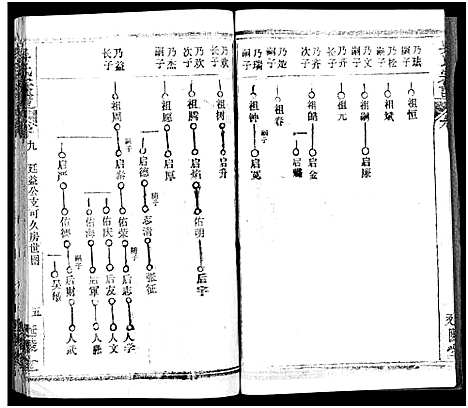 乃珐
嗣子
祖恒
乃松
次子
祖斌
乃文
嗣子
祖嗣
启康
乃升
长子
祖元
乃齐
次子
祖皓
启金
启骦
乃楚
嗣子
祖春
乃瑞
嗣子
祖钟
嗣子
启宽
乃欢
长子
祖树
启升
乃欢
次子
祖腾
启焰
佑明
后宇
乃杰
嗣子
祖愿
启厚
乃益
长子
祖周
启德
志清
张征
嗣子
启泰
佑荣
后志
人学
佑庆
后友
人文
佑海
后军
启严
佑德
嗣子
后财
人武
吴敏
九
廷益公支可久房世图
五